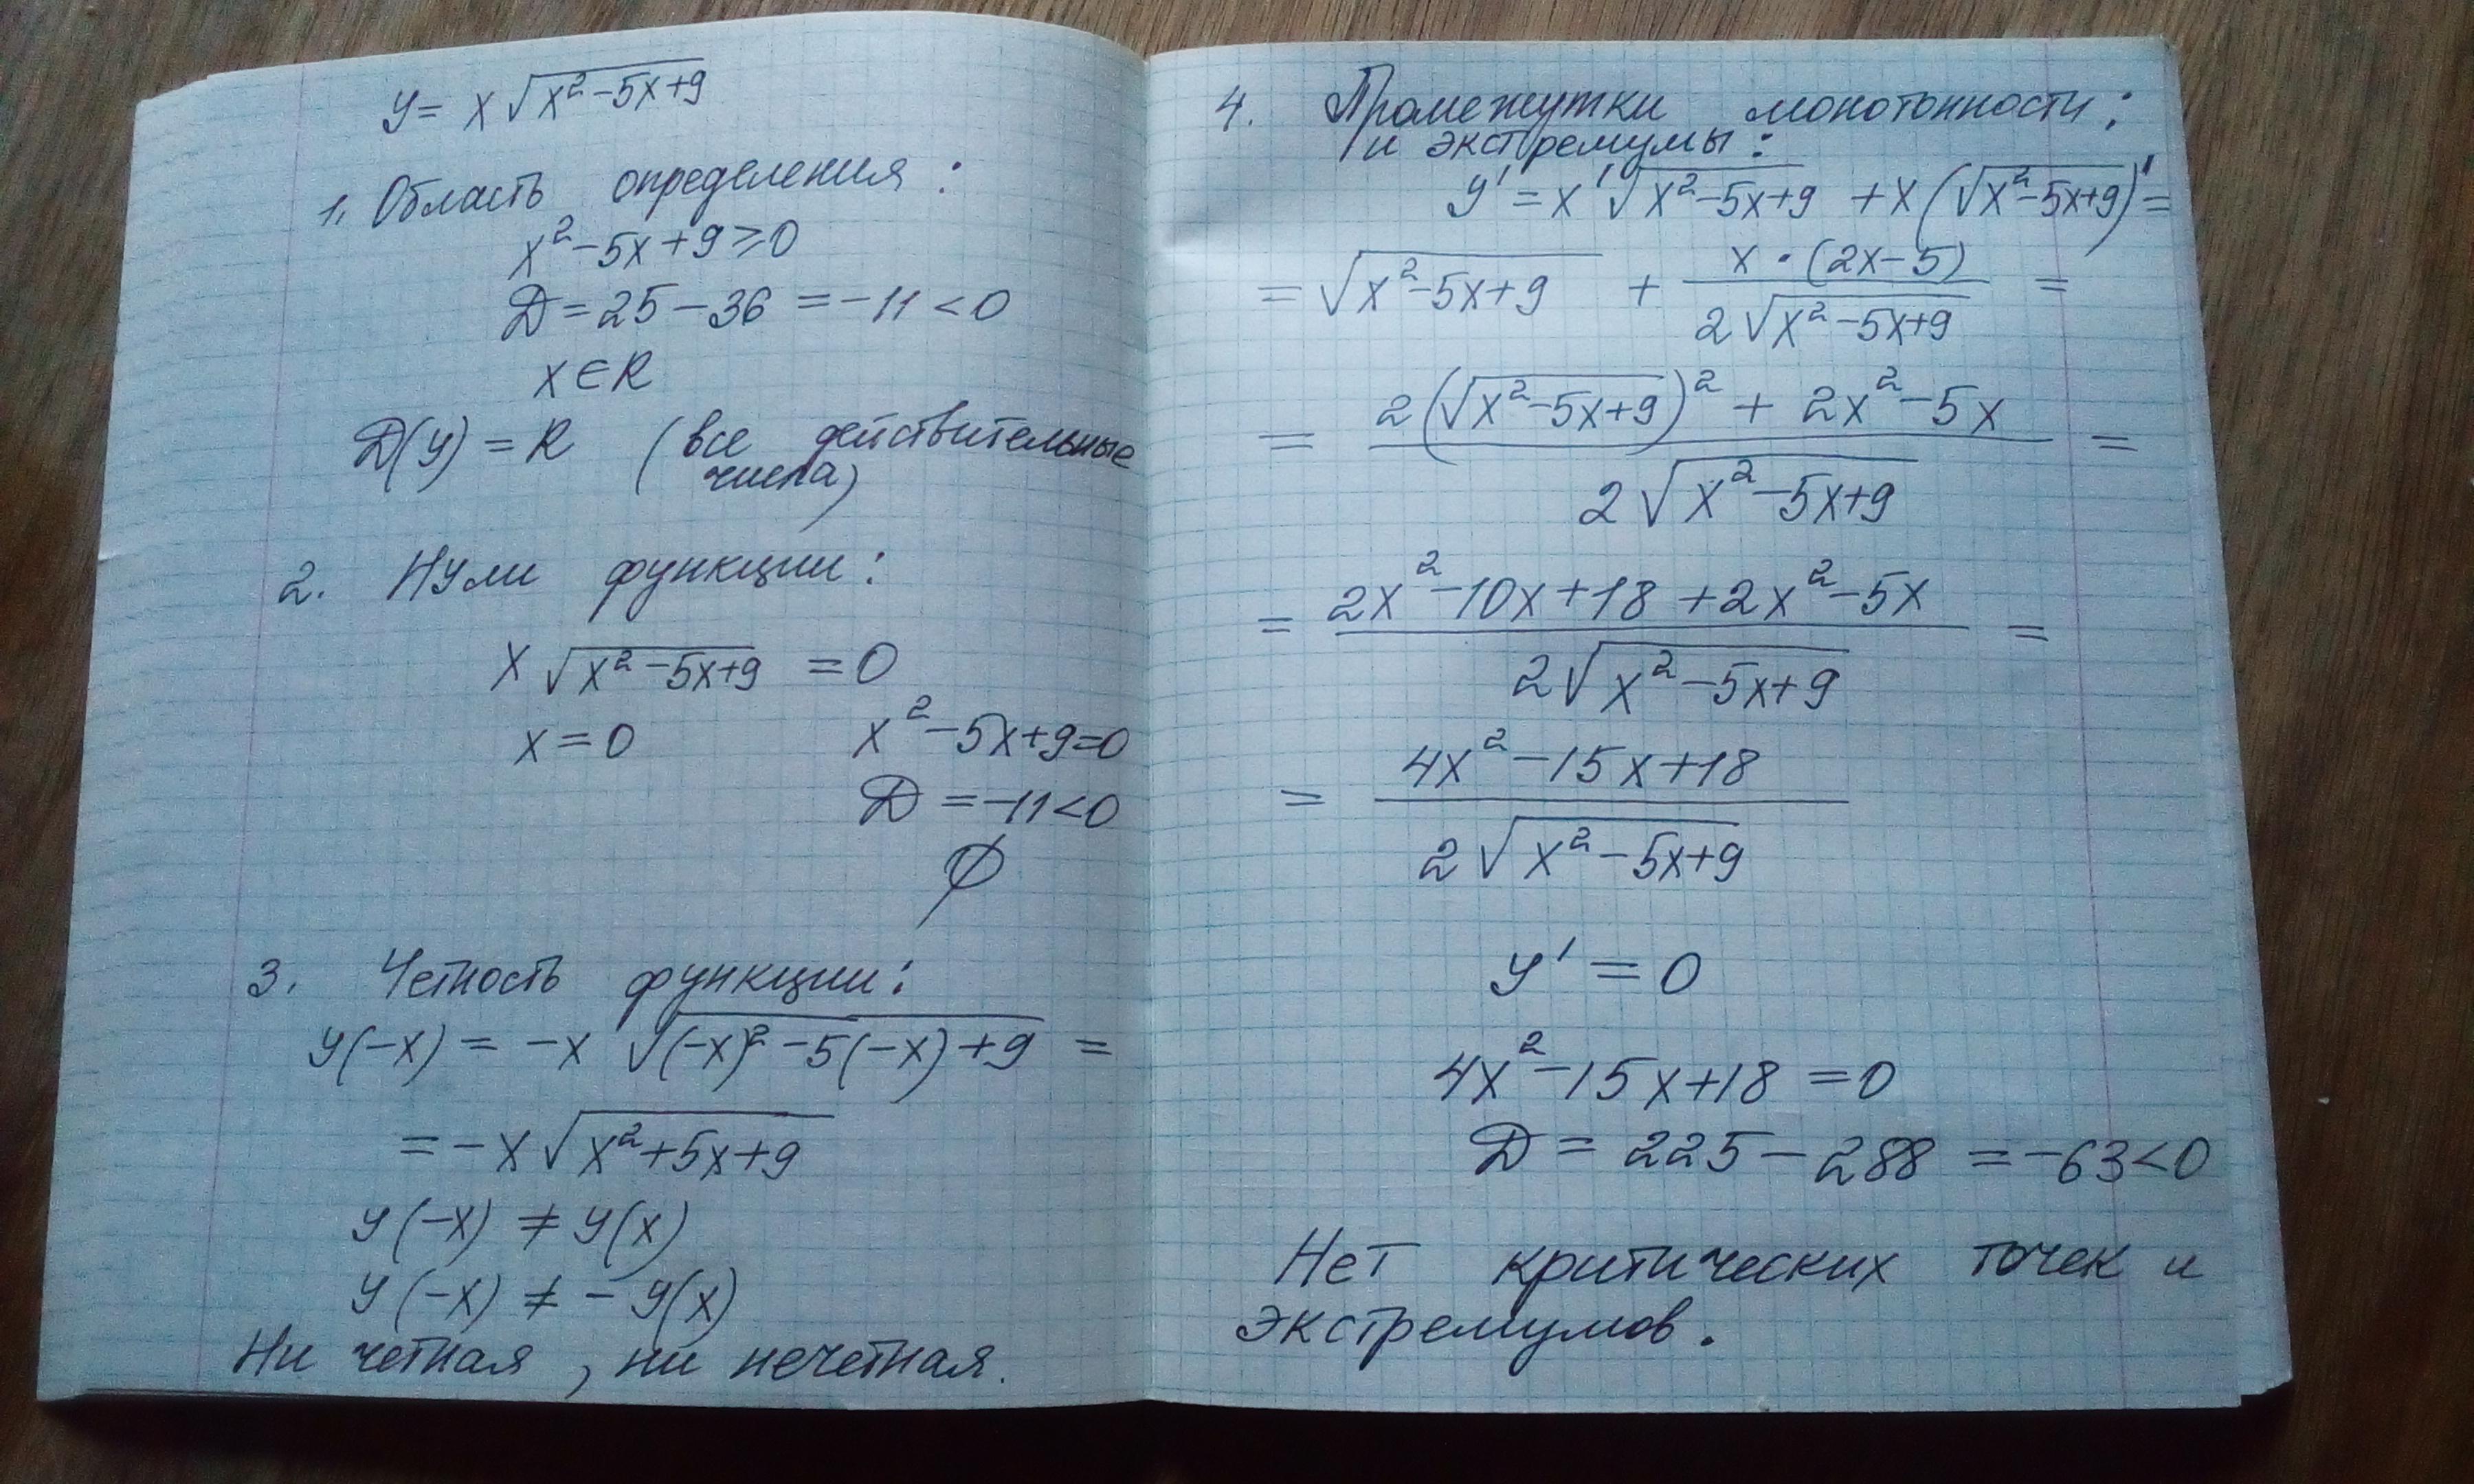 y = x√(x²-5x+9)
1. Область определения:
x²-5x+9≥0
D = 25-36 = -11 < 0
x∈R
D(y) = R (все действительные
числа)
2. Нули функции:
x√(x²-5x+9) = 0
x=0 x²-5x+9=0
D = -11<0
∅
3. Четность функции:
y(-x) = -x √((-x)²-5(-x)+9) =
= -x√(x²+5x+9)
y(-x) ≠ y(x)
y(-x) ≠ -y(x)
Ни четная, ни нечетная.
4. Промежутки монотонности:
и экстремумы:
y' = x'√(x²-5x+9) + x(√(x²-5x+9))' =
= √(x²-5x+9) + x·(2x-5) / 2√(x²-5x+9) =
= (2(√(x²-5x+9))² + 2x²-5x) / 2√(x²-5x+9) =
= (2x²-10x+18+2x²-5x) / 2√(x²-5x+9) =
= (4x²-15x+18) / 2√(x²-5x+9)
y' = 0
4x²-15x+18 = 0
D = 225-288 = -63<0
Нет критических точек и
экстремумов.